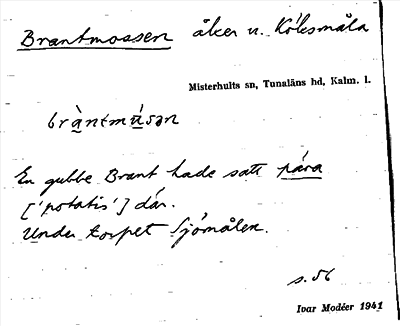 Brantmossen åker u. Kölsmåla
Misterhults sn, Tunaläns hd, Kalm. l.
bràntmúsən
En gubbe Brant hade satt pära
['potatis'] där.
Under torpet Sjömålen.
s. 56
Ivar Modéer 1941